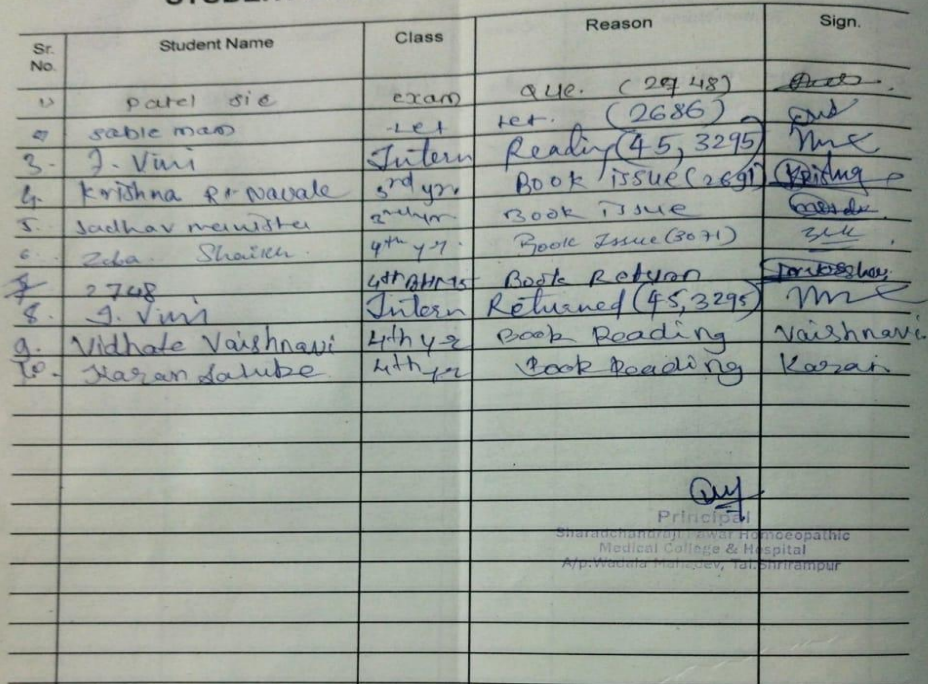 Sr. No. Student Name Class Reason Sign.
1) patel sie exam que. (2748)
2) sable mam ret. (2686)
3. J. Vini Intern Reading (45, 3295)
4. Krishna R. Navale 3rd yr. Book issue (2691)
5. Jadhav manisha Book issue
6 Zeba Shaikh 4th yr. Book Issue (3071)
7 2748 4th BHMS Book Return
8. J. Vini Intern Returned (45, 3295)
9. Vidhate Vaishnavi 4th yr Book Reading Vaishnavi
10. Karan Salube 4th yr Book Reading Karan
Principal
Sharadchandraji Pawar Homoeopathic
Medical College & Hospital
A/p.Wadala Mahadev, Tal.Shrirampur